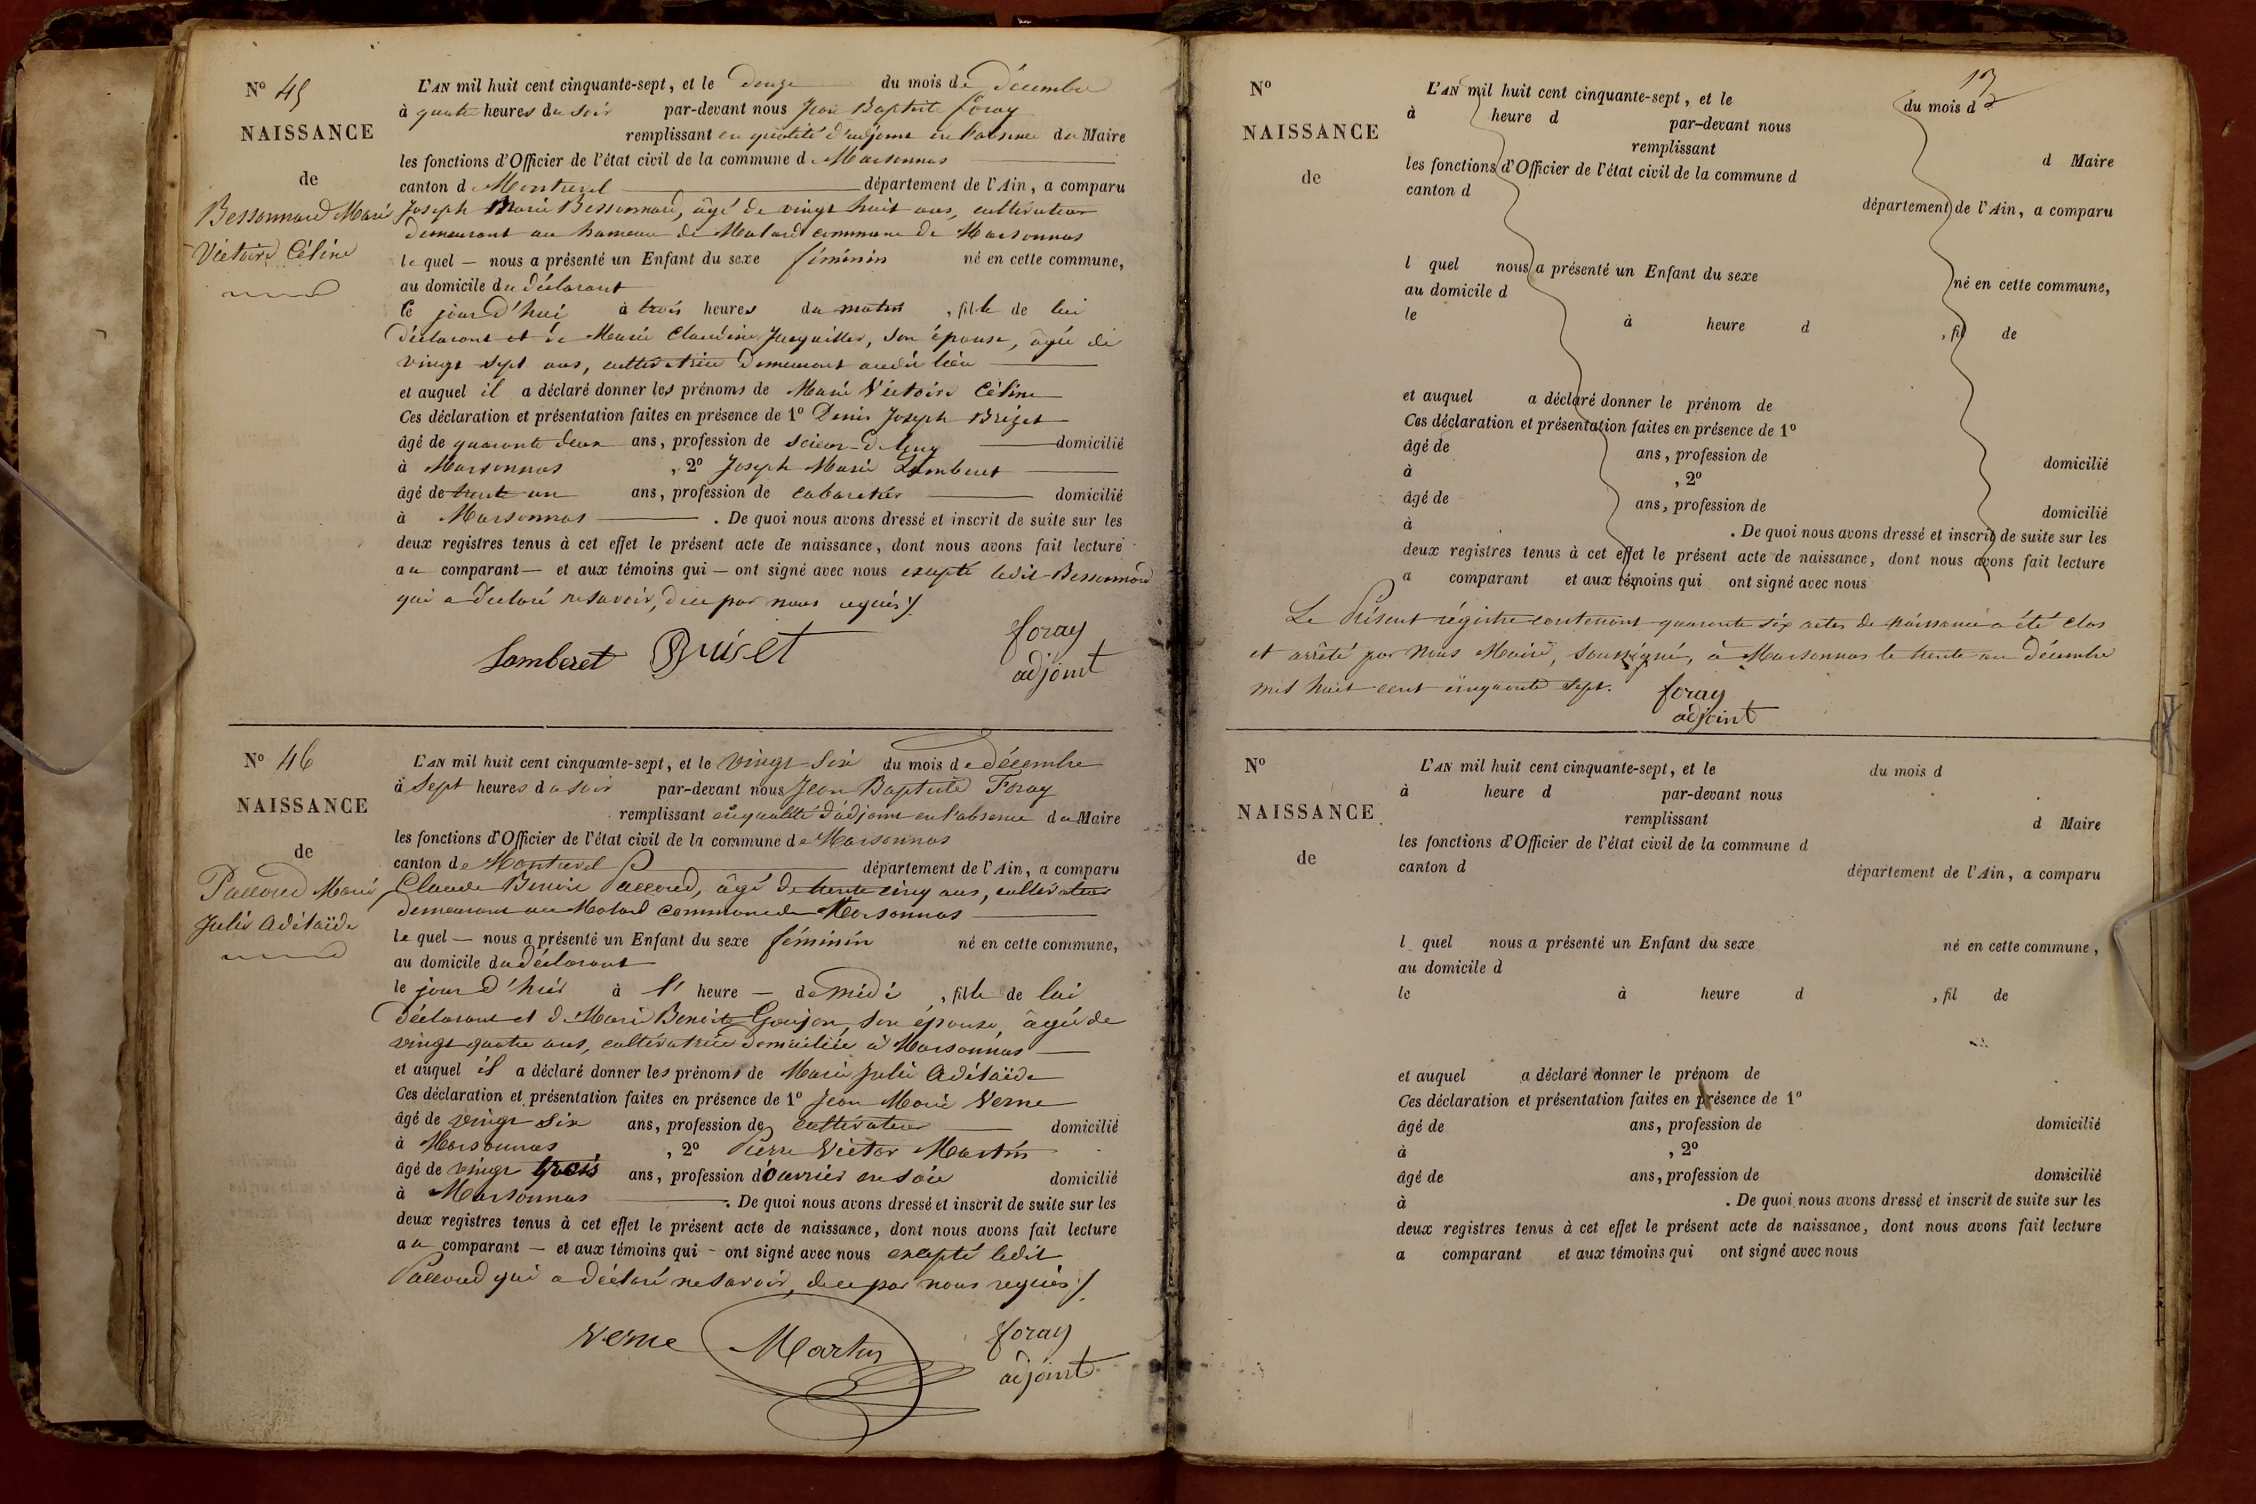 Nº 45
NAISSANCE
de
Bessonnard Marie
Victoire Céline
L'AN mil huit cent cinquante-sept, et le douze du mois de décembre
à quatre heures du soir par-devant nous Jean Baptiste Foray
remplissant en qualité d'adjoint en l'absence du Maire
les fonctions d'Officier de l'état civil de la commune de Marsonnas
canton de Montrevel département de l'Ain, a comparu
Joseph Marie Bessonnard, âgé de vingt huit ans, cultivateur
demeurant au hameau de Malard commune de Marsonnas
lequel — nous a présenté un Enfant du sexe féminin né en cette commune,
au domicile du déclarant
Ce jourd'hui à trois heures du matin, fille de lui
déclarant et de Marie Claudine, son épouse, âgée de
vingt sept ans, cultivatrice demeurant audit lieu
et auquel il a déclaré donner les prénoms de Marie Victoire Céline
Ces déclaration et présentation faites en présence de 1º Denis Joseph Brizet
âgé de quarante deux ans, profession de scieur de long domicilié
à Marsonnas, 2º Joseph Marie Lamberet
âgé de trente un ans, profession de cabaretier domicilié
à Marsonnas. De quoi nous avons dressé et inscrit de suite sur les
deux registres tenus à cet effet le présent acte de naissance, dont nous avons fait lecture
au comparant — et aux témoins qui — ont signé avec nous excepté ledit Bessonnard
qui a déclaré ne savoir, de ce par nous requis
Lamberet Brizet foray
adjoint
Nº 46
NAISSANCE
de
Pacoud Marie
Julie Adélaïde
L'AN mil huit cent cinquante-sept, et le vingt-six du mois de décembre
à sept heures du soir par-devant nous Jean Baptiste Foray
remplissant en qualité d'adjoint en l'absence du Maire
les fonctions d'Officier de l'état civil de la commune de Marsonnas
canton de Montrevel département de l'Ain, a comparu
Claude Benoit Pacoud, âgé de trente cinq ans, cultivateur
demeurant au Molard commune de Marsonnas
lequel — nous a présenté un Enfant du sexe féminin né en cette commune,
au domicile du déclarant
le jour d'hier à l' heure — de midi, fille de lui
déclarant et de Marie Benoite Goujon, son épouse, âgée de
vingt quatre ans, cultivatrice domiciliée à Marsonnas
et auquel il a déclaré donner les prénoms de Marie Julie Adélaïde
Ces déclaration et présentation faites en présence de 1º Jean Marie Verne
âgé de vingt six ans, profession de cultivateur domicilié
à Marsonnas, 2º Pierre Victor Martin
âgé de vingt trois ans, profession d'ouvrier en soie domicilié
à Marsonnas. De quoi nous avons dressé et inscrit de suite sur les
deux registres tenus à cet effet le présent acte de naissance, dont nous avons fait lecture
au comparant — et aux témoins qui - ont signé avec nous excepté ledit
Pacoud qui a déclaré ne savoir, de ce par nous requis
Verne Martin foray
adjoint
Nº
NAISSANCE
de
L'AN mil huit cent cinquante-sept, et le du mois d
à heure d par-devant nous
remplissant d Maire
les fonctions d'Officier de l'état civil de la commune d
canton d département de l'Ain, a comparu
l quel nous a présenté un Enfant du sexe né en cette commune,
au domicile d
le à heure d , fil de
et auquel a déclaré donner le prénom de
Ces déclaration et présentation faites en présence de 1º
âgé de ans, profession de domicilié
à , 2º
âgé de ans, profession de domicilié
à . De quoi nous avons dressé et inscrit de suite sur les
deux registres tenus à cet effet le présent acte de naissance, dont nous avons fait lecture
a comparant et aux témoins qui ont signé avec nous
Le Présent régistre contenant quarante six actes de naissance a été clos
et arrêté par Nous Maire, soussigné, à Marsonnas le trente un décembre
mil huit cent cinquante sept. foray
adjoint
Nº
NAISSANCE
de
L'AN mil huit cent cinquante-sept, et le du mois d
à heure d par-devant nous
remplissant d Maire
les fonctions d'Officier de l'état civil de la commune d
canton d département de l'Ain, a comparu
l quel nous a présenté un Enfant du sexe né en cette commune,
au domicile d
le à heure d , fil de
et auquel a déclaré donner le prénom de
Ces déclaration et présentation faites en présence de 1º
âgé de ans, profession de domicilié
à , 2º
âgé de ans, profession de domicilié
à . De quoi nous avons dressé et inscrit de suite sur les
deux registres tenus à cet effet le présent acte de naissance, dont nous avons fait lecture
a comparant et aux témoins qui ont signé avec nous